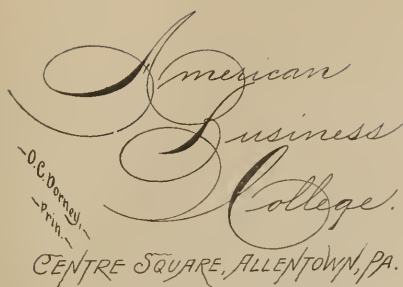 American
Business
College.
-O.C. Dorney,-
-Prin.-
CENTRE SQUARE, ALLENTOWN, PA.